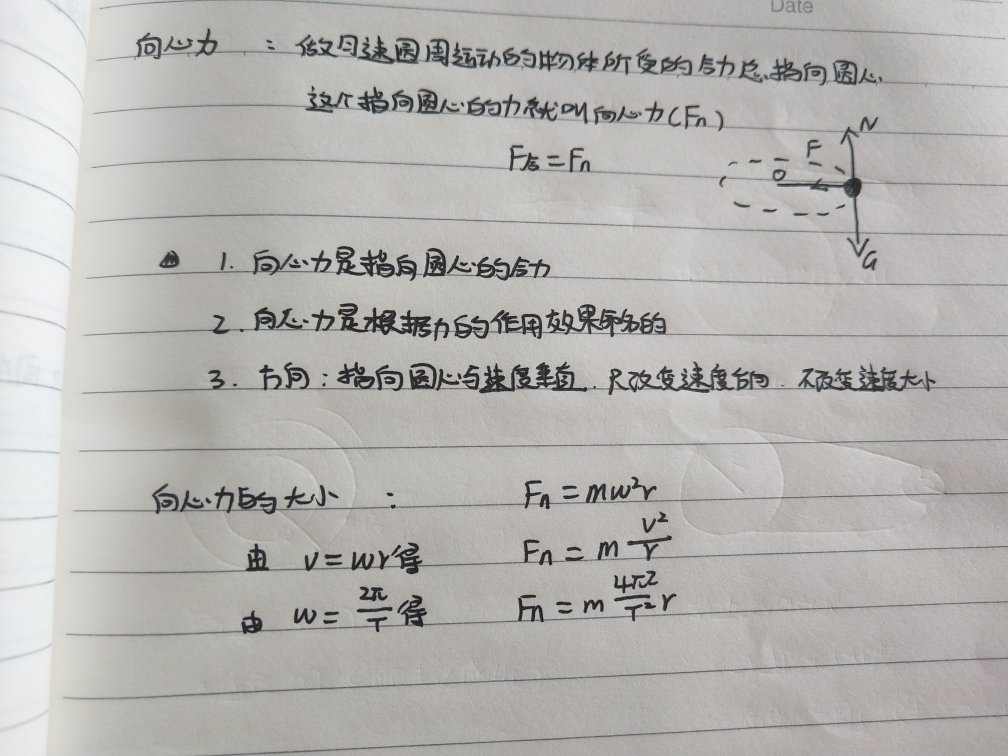 Date
向心力 : 做匀速圆周运动的物体所受的合力总指向圆心,
这个指向圆心的力就叫向心力(Fn)
F合=Fn
N
F
O
G
1. 向心力是指向圆心的合力
2. 向心力是根据力的作用效果命名的
3. 方向:指向圆心与速度垂直.只改变速度方向.不改变速度大小
向心力的大小 : Fn=mw²r
由 v=wr得 Fn=m v²/r
由 w=2π/T 得 Fn=m 4π²/T² r